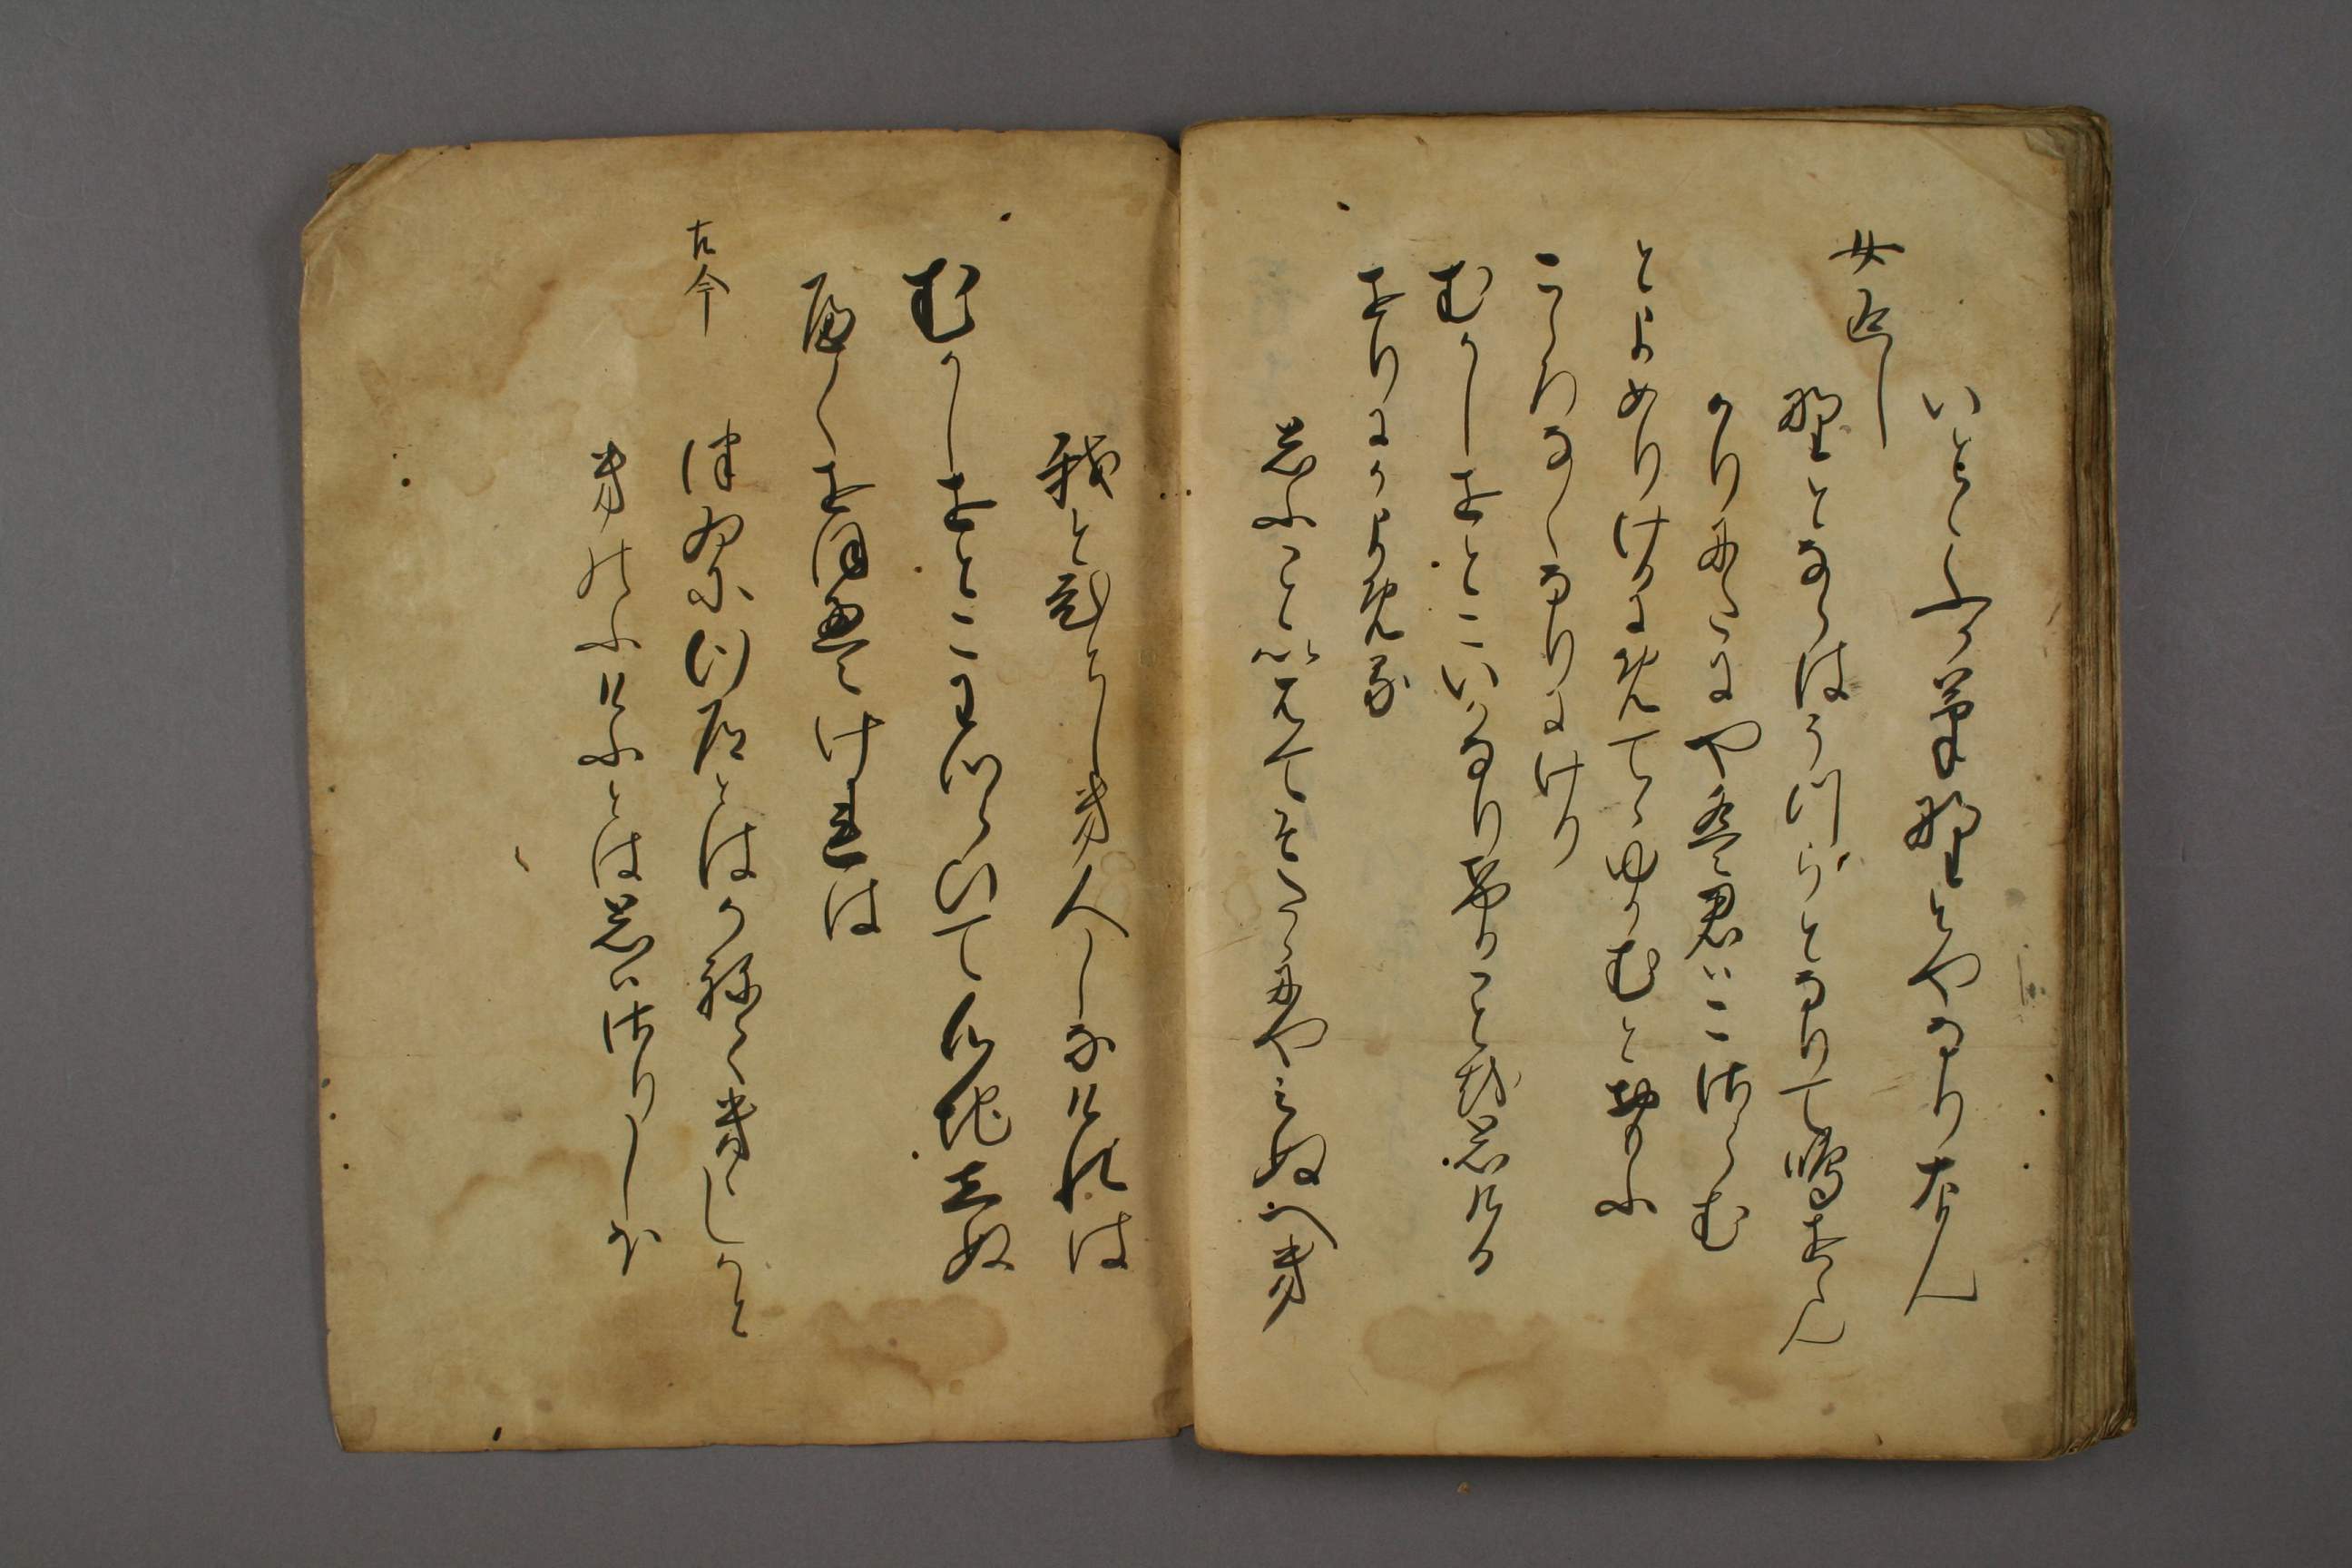 いとゝふか草野とやなりなん
女返し
野とならはうつらとなりて鳴をらん
かりにたにやは君はこさらむ
とよめりけるにめてゝゆかむとおもふ
こゝろなくなりにけり
むかしおとこいかなりけることを思ける
おりにかよめる
思ふこといはてそたゝにやみぬへき
我とひとしき人しなけれは
むかしおとこわつらひて心地しぬ
へくおほえけれは
古今
つゐに行道とはかねてきゝしかと
きのふけふとは思はさりしを